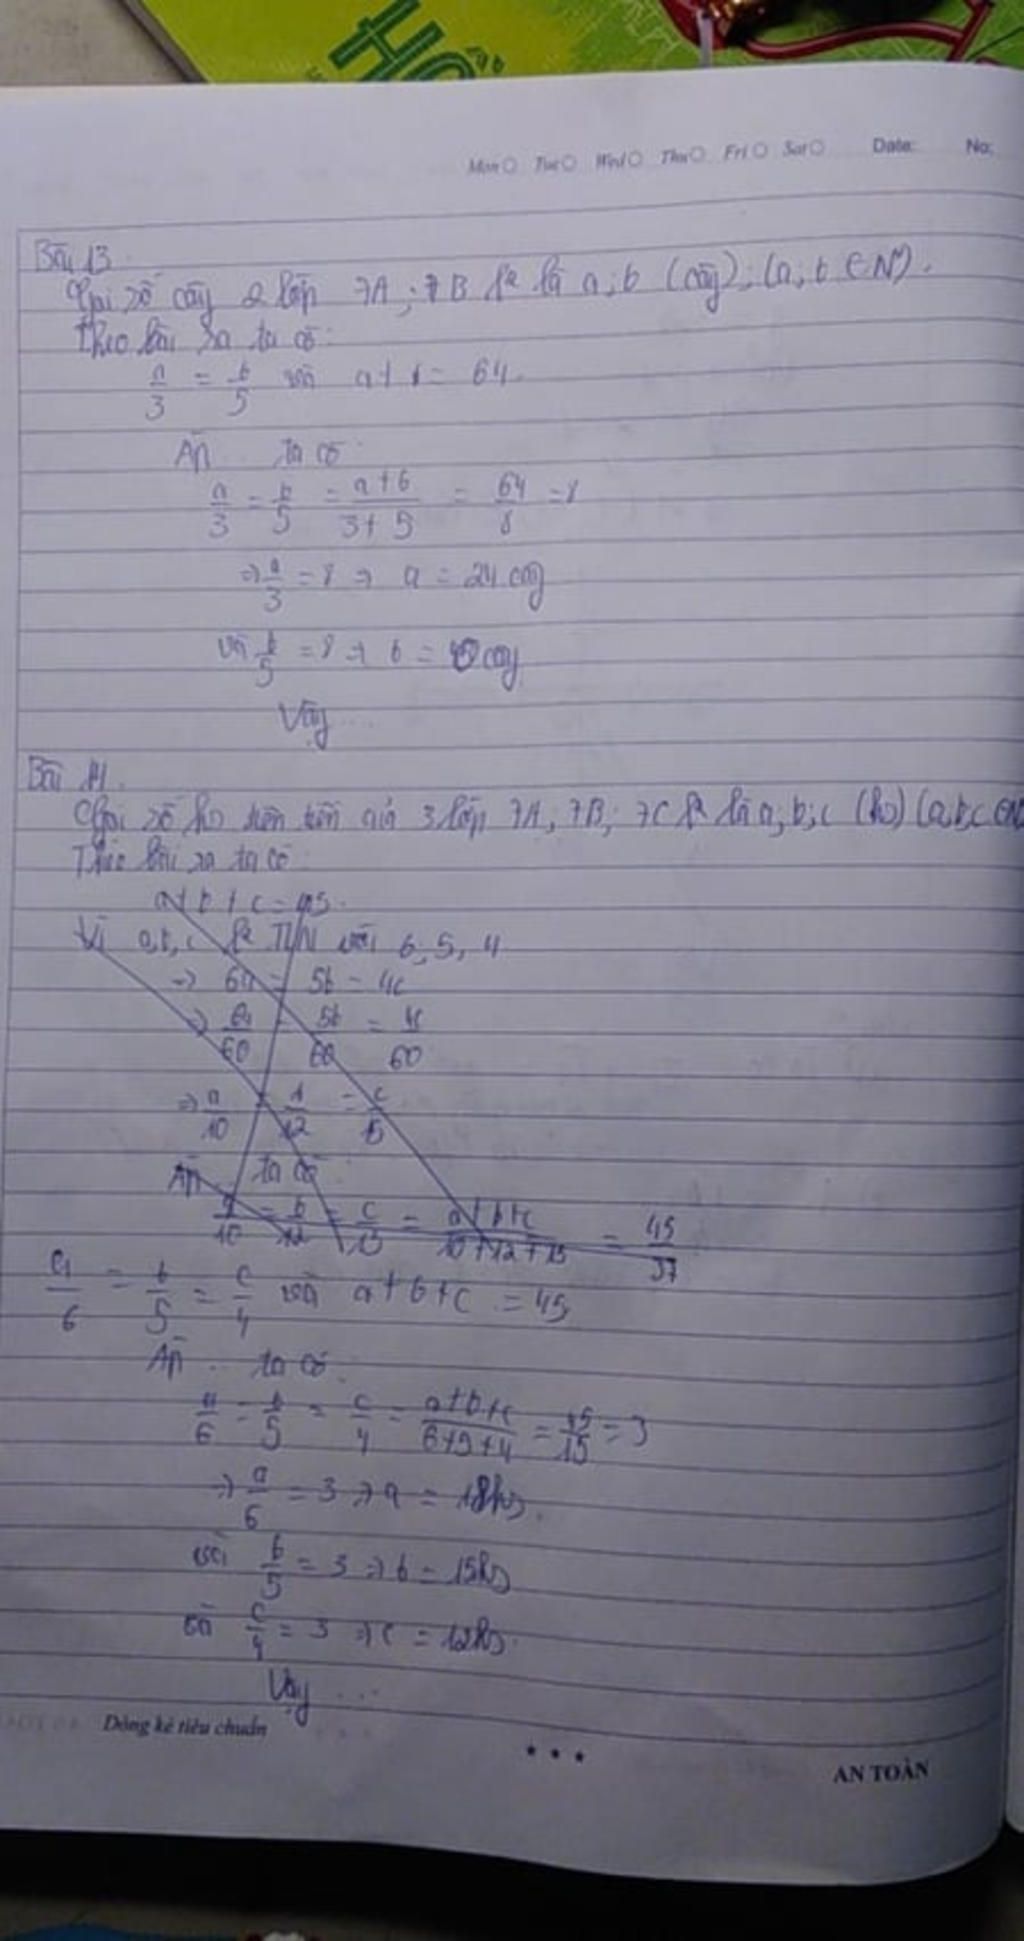 Hồ
Mon Tue Wed Thu Fri Sat Date: No:
Bài 13
Gọi số cây 2 lớp 7A; 7B lần là a; b (cây); (a; b ∈ N*).
Theo bài ra ta có:
a/3 = b/5 và a + b = 64
AD ta có:
a/3 = b/5 = a+b/3+5 = 64/8 = 8
=> a/3 = 8 => a = 24 cây
và b/5 = 8 => b = 40 cây
Vậy ...
Bài 14.
Gọi số hs tiên tiến của 3 lớp 7A, 7B; 7C là a; b; c (hs) (a,b,c ∈
Theo bài ra ta có:
a + b + c = 45.
Vì a, b, c TLN với 6, 5, 4
=> 6a = 5b = 4c
=> 6a/60 = 5b/60 = 4c/60
=> a/10 = b/12 = c/15
AD ta có:
a/10 = b/12 = c/15 = a+b+c/10+12+15 = 45/37
a/6 = b/5 = c/4 và a + b + c = 45
AD .. ta có:
a/6 = b/5 = c/4 = a+b+c/6+5+4 = 45/15 = 3
=> a/6 = 3 => a = 18hs.
với b/5 = 3 => b = 15hs
và c/4 = 3 => c = 12hs.
Vậy ...
Dòng kẻ tiêu chuẩn
AN TOÀN